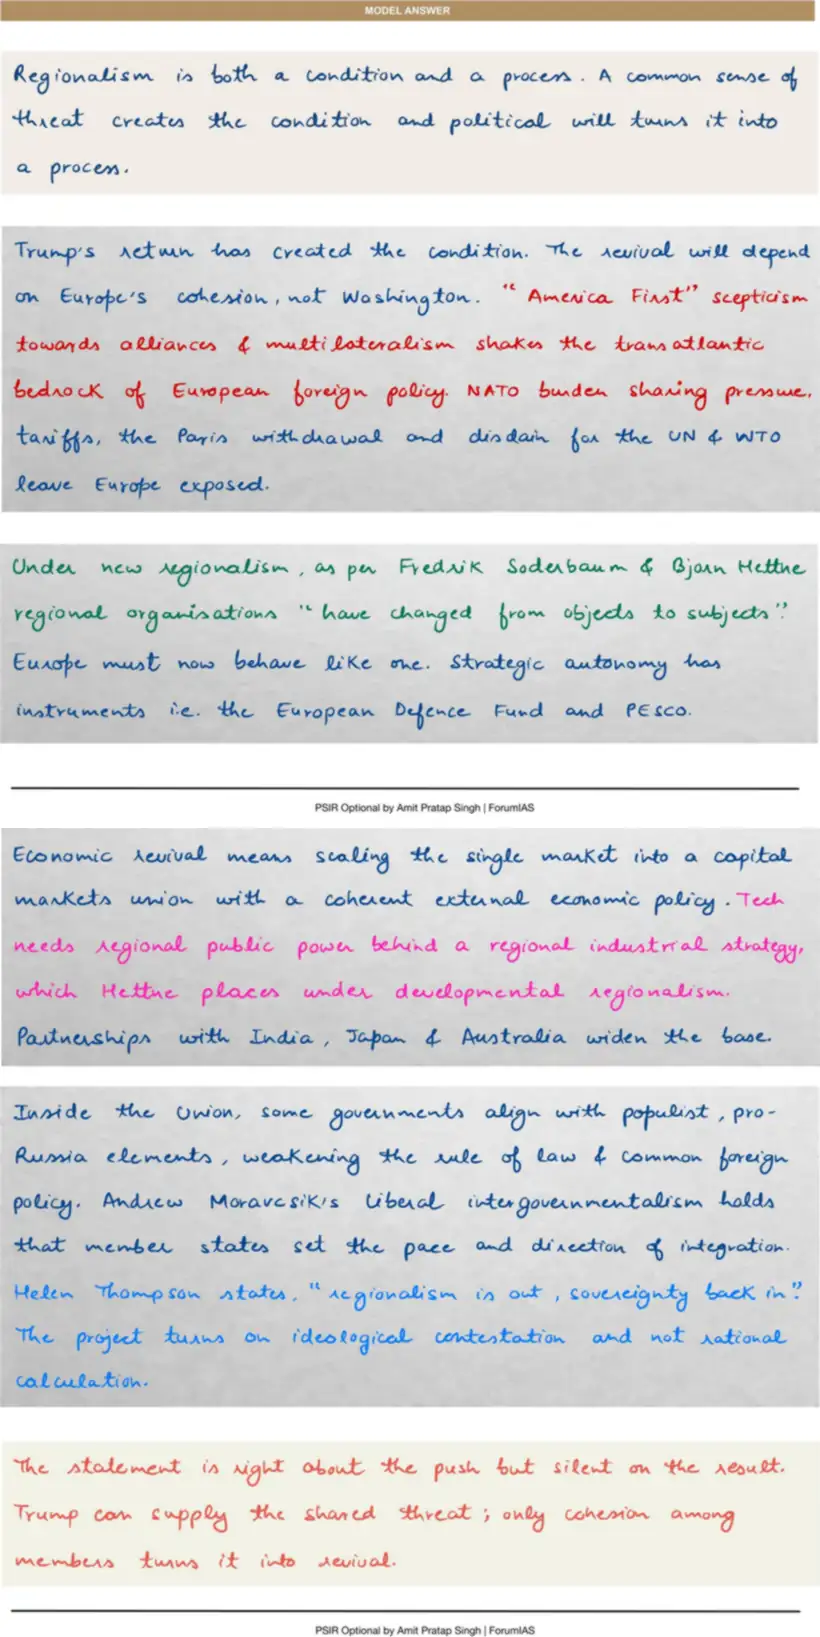 MODEL ANSWER
Regionalism is both a condition and a process. A common sense of
threat creates the condition and political will turns it into
a process.
Trump's return has created the condition. The revival will depend
on Europe's cohesion, not Washington. "America First" scepticism
towards alliances & multilateralism shakes the transatlantic
bedrock of European foreign policy. NATO burden sharing pressure,
tariffs, the Paris withdrawal and disdain for the UN & WTO
leave Europe exposed.
Under new regionalism, as per Fredrik Soderbaum & Bjorn Hettne
regional organisations "have changed from objects to subjects".
Europe must now behave like one. Strategic autonomy has
instruments i.e. the European Defence Fund and PESCO.
PSIR Optional by Amit Pratap Singh | ForumIAS
Economic revival means scaling the single market into a capital
markets union with a coherent external economic policy. Tech
needs regional public power behind a regional industrial strategy,
which Hettne places under developmental regionalism.
Partnerships with India, Japan & Australia widen the base.
Inside the Union, some governments align with populist, pro-
Russia elements, weakening the rule of law & common foreign
policy. Andrew Moravcsik's Liberal intergovernmentalism holds
that member states set the pace and direction of integration.
Helen Thompson states, "regionalism is out, sovereignty back in".
The project turns on ideological contestation and not rational
calculation.
The statement is right about the push but silent on the result.
Trump can supply the shared threat; only cohesion among
members turns it into revival.
PSIR Optional by Amit Pratap Singh | ForumIAS